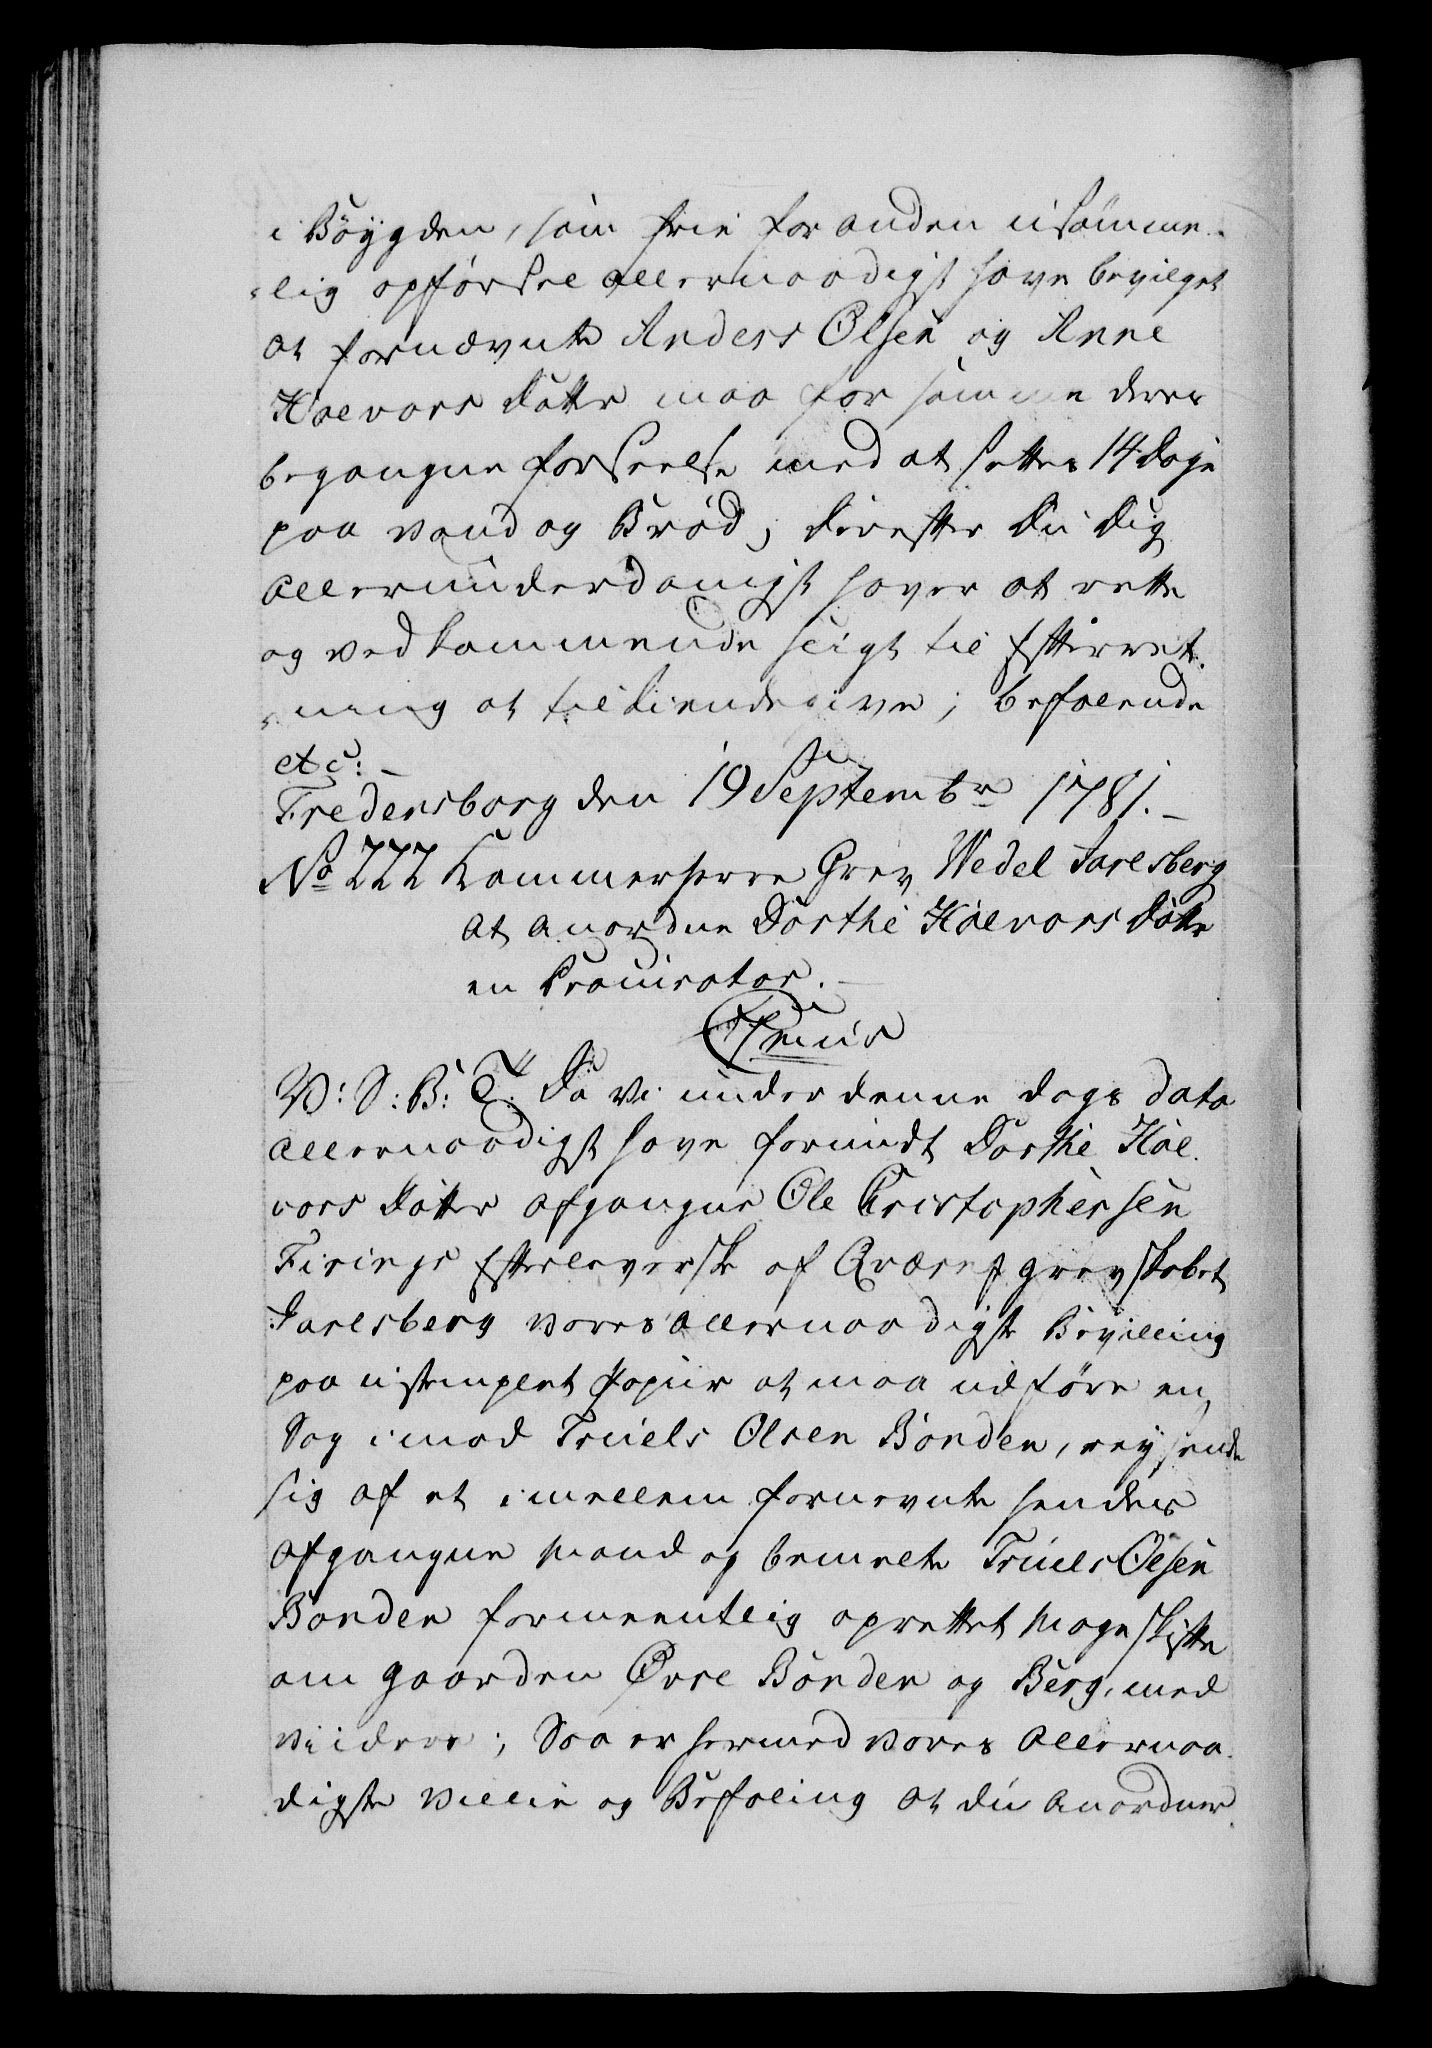 i Böÿgden, som frie for anden usömme-
-lig opförsel allernaadigst have bevilget
at fornævnte Anders Olsen og Anne
Halvors Datter maa for samme deres
begangne forseelse med at settes 14 Dage
paa vand og Brød; Derefter Du Dig
allerunderdanigst haver at rette
og vedkommende sligt til Efterret-
-ning at tilkiendegive; befalende
etc: -
Fredensborg den 19 Septembr 1781. -
No 222 Kammerherre Grev Wedel Jarlsberg
at anordne Dorthe Halvors Datter
en Procurator. -
V: S: B: T: Da Vi under denne dags dato
allernaadigst have forundt Dorthe Hal-
vors Datter afgangne Ole Christophersen
Firings Efterleverske af Qværn i grevskabet
Jarlsberg vores allernaadigste Bevilling
paa ustemplet Papiir at maa udföre en
Sag imod Truels Olsen Bonden, reysende
sig af et imellem fornevnte hendes
afgangne Mand og bemelte Truels Olsen
Bonden formeentlig oprettet Mageskifte
om gaarden Øvre Bonden og Berg, med
viidere; Saa er hermed vores allernaa-
digste villie og Befaling at du anordner